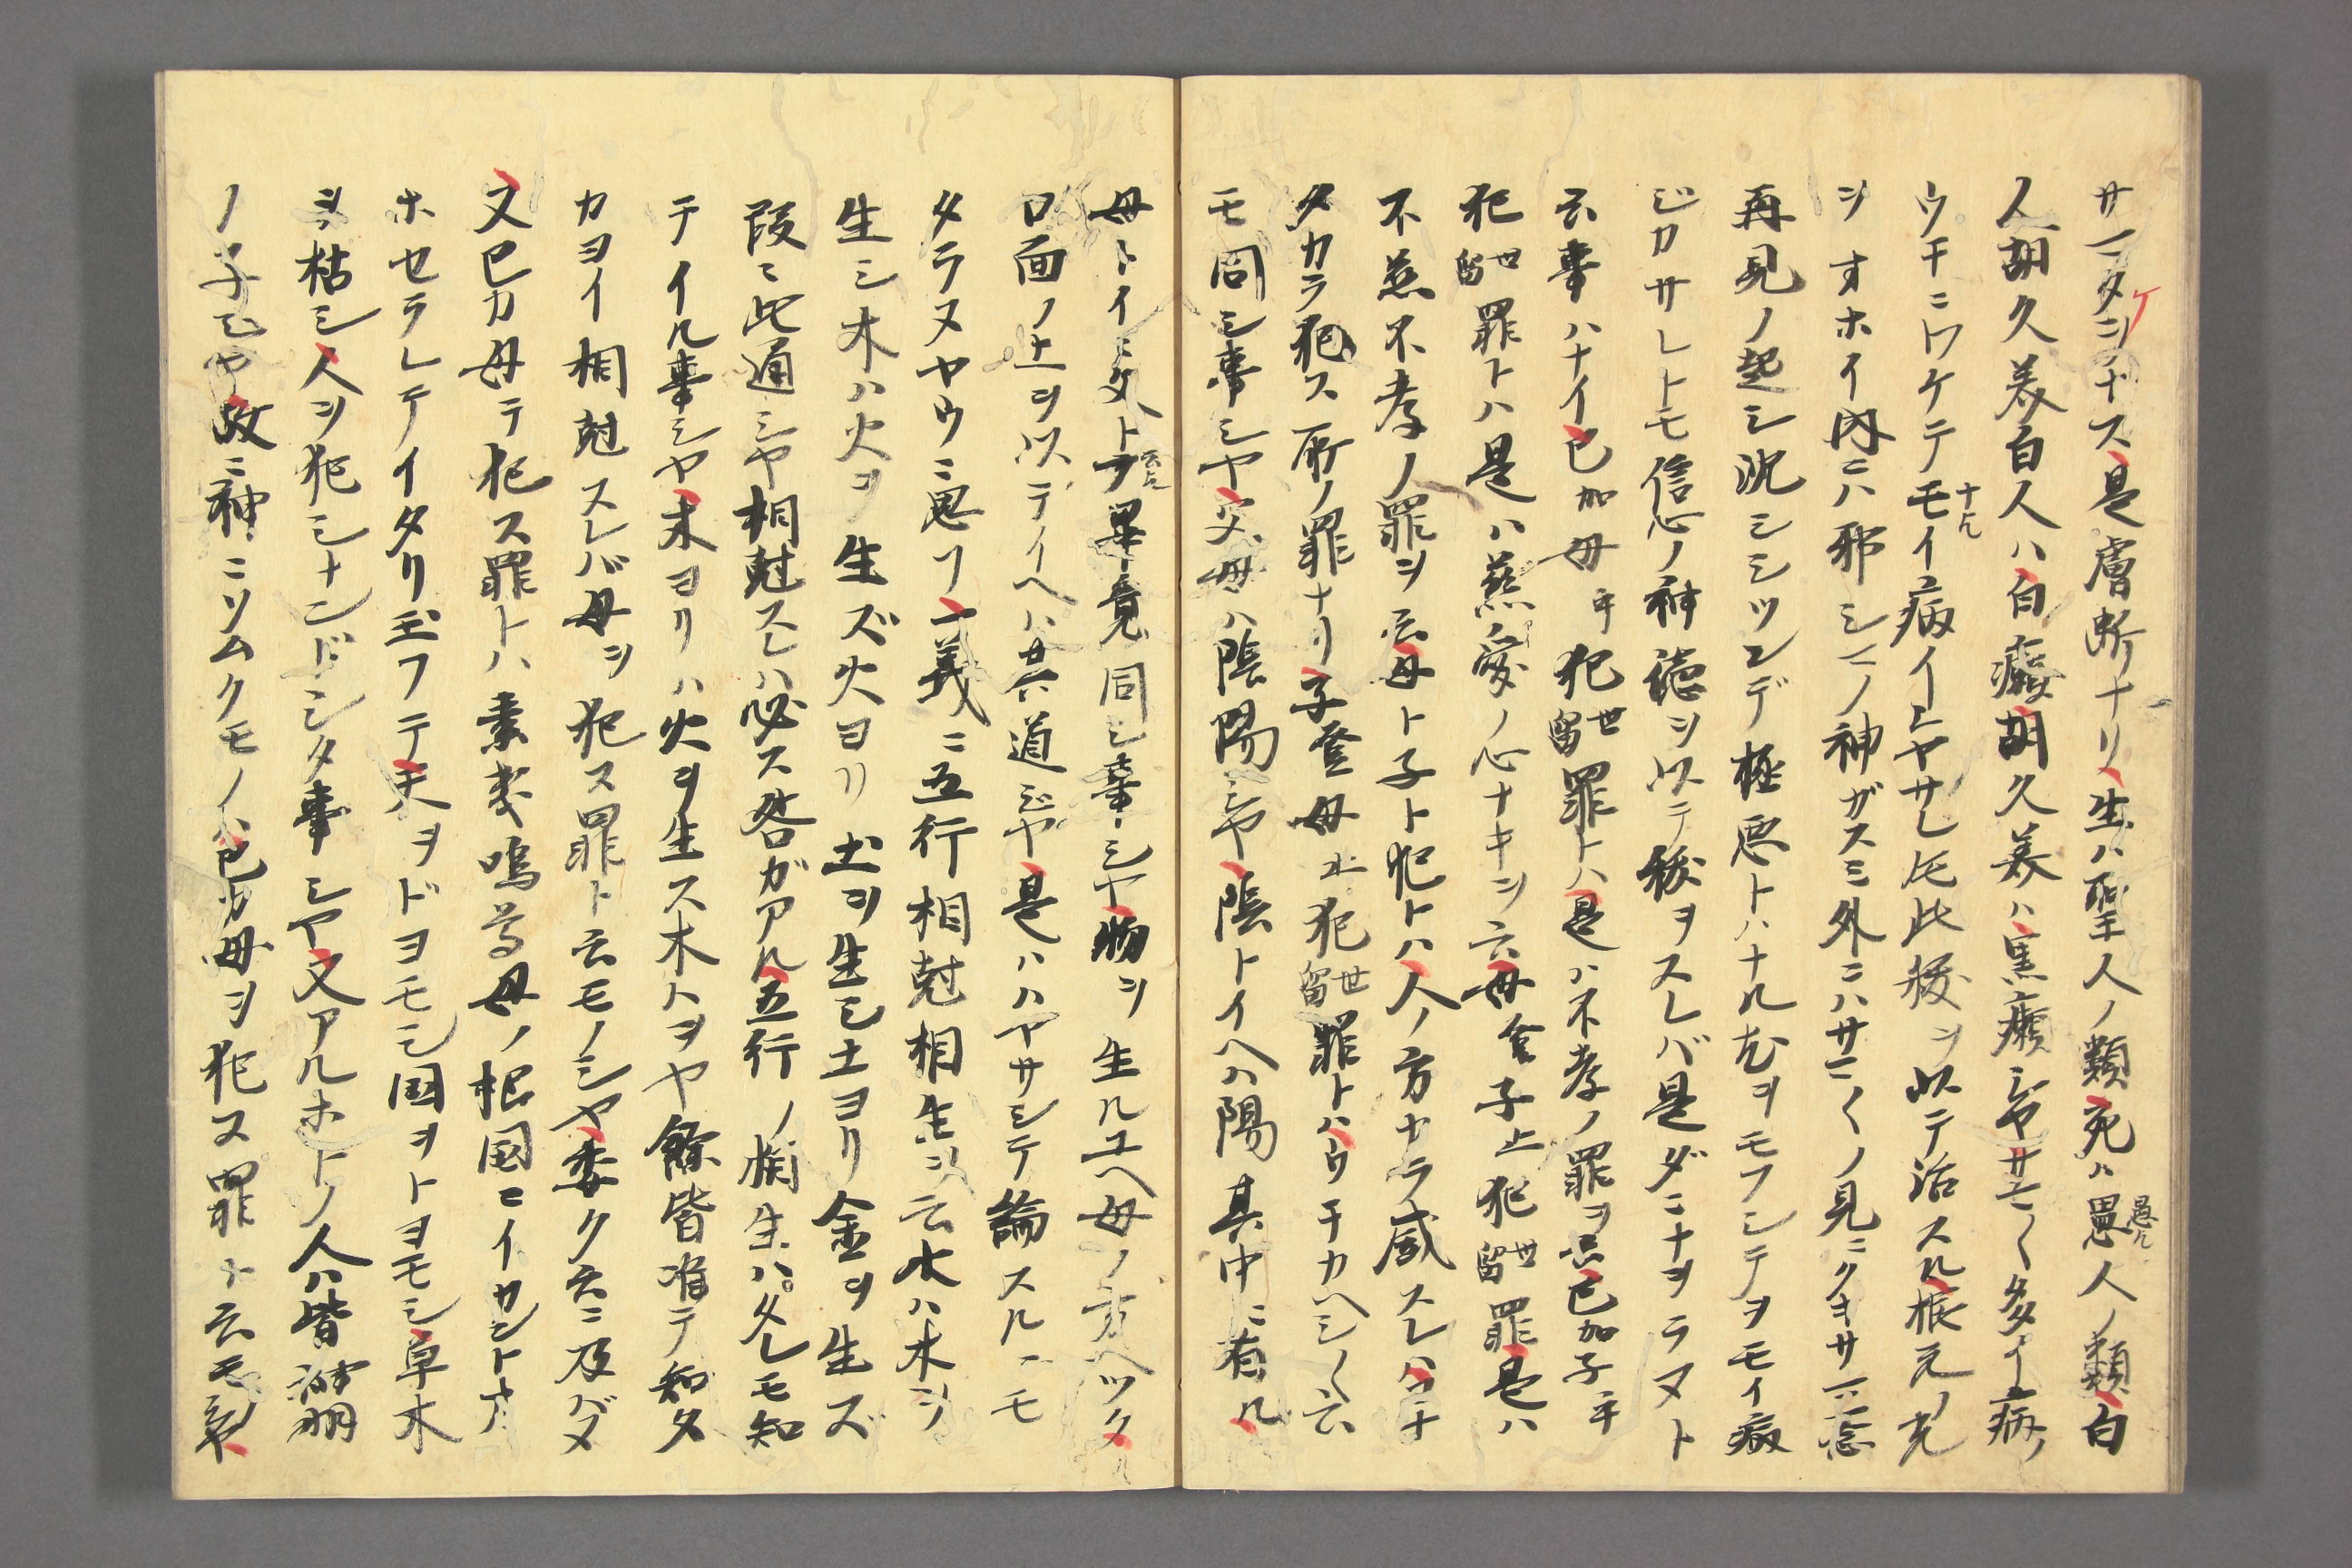 サマタケンナス是膚断ナリ生ハ聖人ノ類死ハ愚人ノ類白
人胡久美白人ハ白癩胡久美ハ黒癩シヤサマ〱多イ病ノ
ウチニワケテモイ病イヤサレ圧此祓ヲ以テ治スル根元ノ元
ヲオホイ内ニハ邪シマノ神ガスミ外ニハサマ〱ノ見ニクキサマ念
再見ノ起シ沈シシツンデ極悪トハナルヲモフシテヲモイ病
ジカサレトモ信心ノ神徳ヲ以テ祓ヲスレバ是ダニナヲラヌト
云事ハナイ己加母乎犯世留罪トハ是ハ不孝ノ罪ヲ云己加子乎
犯世留罪トハ是ハ慈愛ノ心ナキヲ云母登子止犯世留罪是ハ
不慈不孝ノ罪ヲ云母ト子ト犯トハ人ノ方カラ威スレハウチ
タカラ犯ス所ノ罪ナリ子登母止犯世留罪トハウチカヘシノ云
モ同シ事シヤ父母ハ陰陽シヤ陰トイヘハ陽其中ニ有ル
母トイヘ父ト云モ畢竟同シ事シヤ物ヲ生ルユヘ母ノ方ヘツク
口面ノ上ヲ以テイヘハ其道ジヤ是ハハヤサシテ論スルニモ
タラヌヤウニ思リ一義ニ五行相尅相生ヲ云水ハ木ヲ
生シ木ハ火ヲ生ズ火ヨリ土ヲ生シ土ヨリ金ヲ生ズ
段ニ此通シヤ相尅スレハ必ス咎ガアル五行ノ相生ハタレモ知
テイル事シヤ木ヨリハ火ヲ生ス木ハヲヤ餘皆准テ知タ
カヨイ相尅スレバ母ヲ犯ス罪ト云モノシヤ委ク云ニ及バヌ
又己カ母テ犯ス罪トハ素戔嗚尊母ノ根国ニイカントナ
ホセラレテイタリ玉フテ天ヲドヨモシ国ヲトヨモシ草木
ヲ枯シ人ヲ犯シナンドシタ事シヤ又アルホトノ人ハ皆神明
ノ子シヤ故ニ神ニソムクモノハ己カ母ヲ犯ス罪ト云モノシヤ